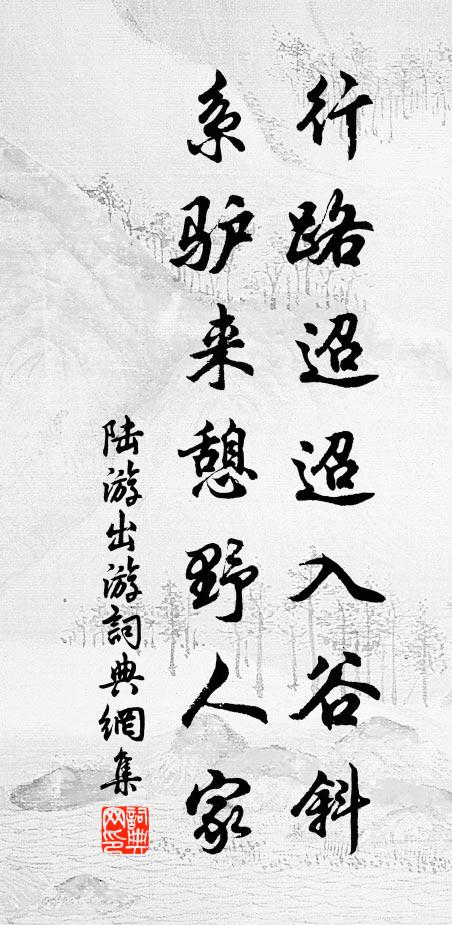 行路迢迢入谷斜
系驴来憩野人家
陆游出游詞典網集
詞典网印